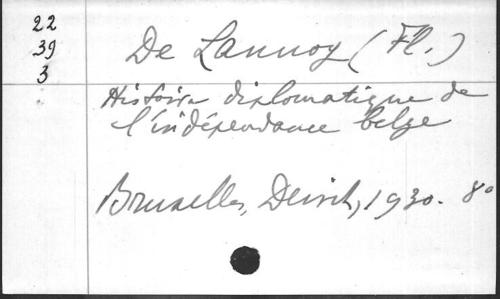 22
39
3
De Lannoy (Fl.)
Histoire diplomatique de
l'indépendance belge
Bruxelles, Dewit, 1930. 8°